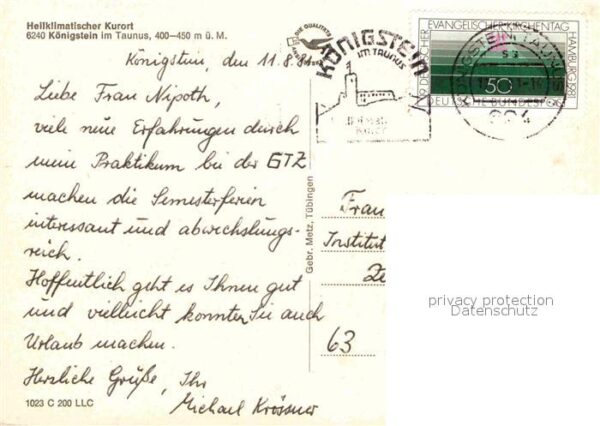 Heilklimatischer Kurort
6240 Königstein im Taunus, 400—450 m ü. M.
Königstein, den 11.8.81
Liebe Frau Nipoth,
viele neue Erfahrungen durch
mein Praktikum bei der GTZ
machen die Semesterferien
interessant und abwechslungs-
reich.
Hoffentlich geht es Ihnen gut
und vielleicht konnten Sie auch
Urlaub machen.
Herzliche Grüße, Ihr
Michael Krössner
1023 C 200 LLC
Gebr. Metz, Tübingen
KÖNIGSTEIN
IM TAUNUS
19. DEUTSCHER EVANGELISCHER KIRCHENTAG HAMBURG 1981
50
DEUTSCHE BUNDESPOST
KÖNIGSTEIN, TAUNUS
624
Frau
Institut
63
privacy protection
Datenschutz